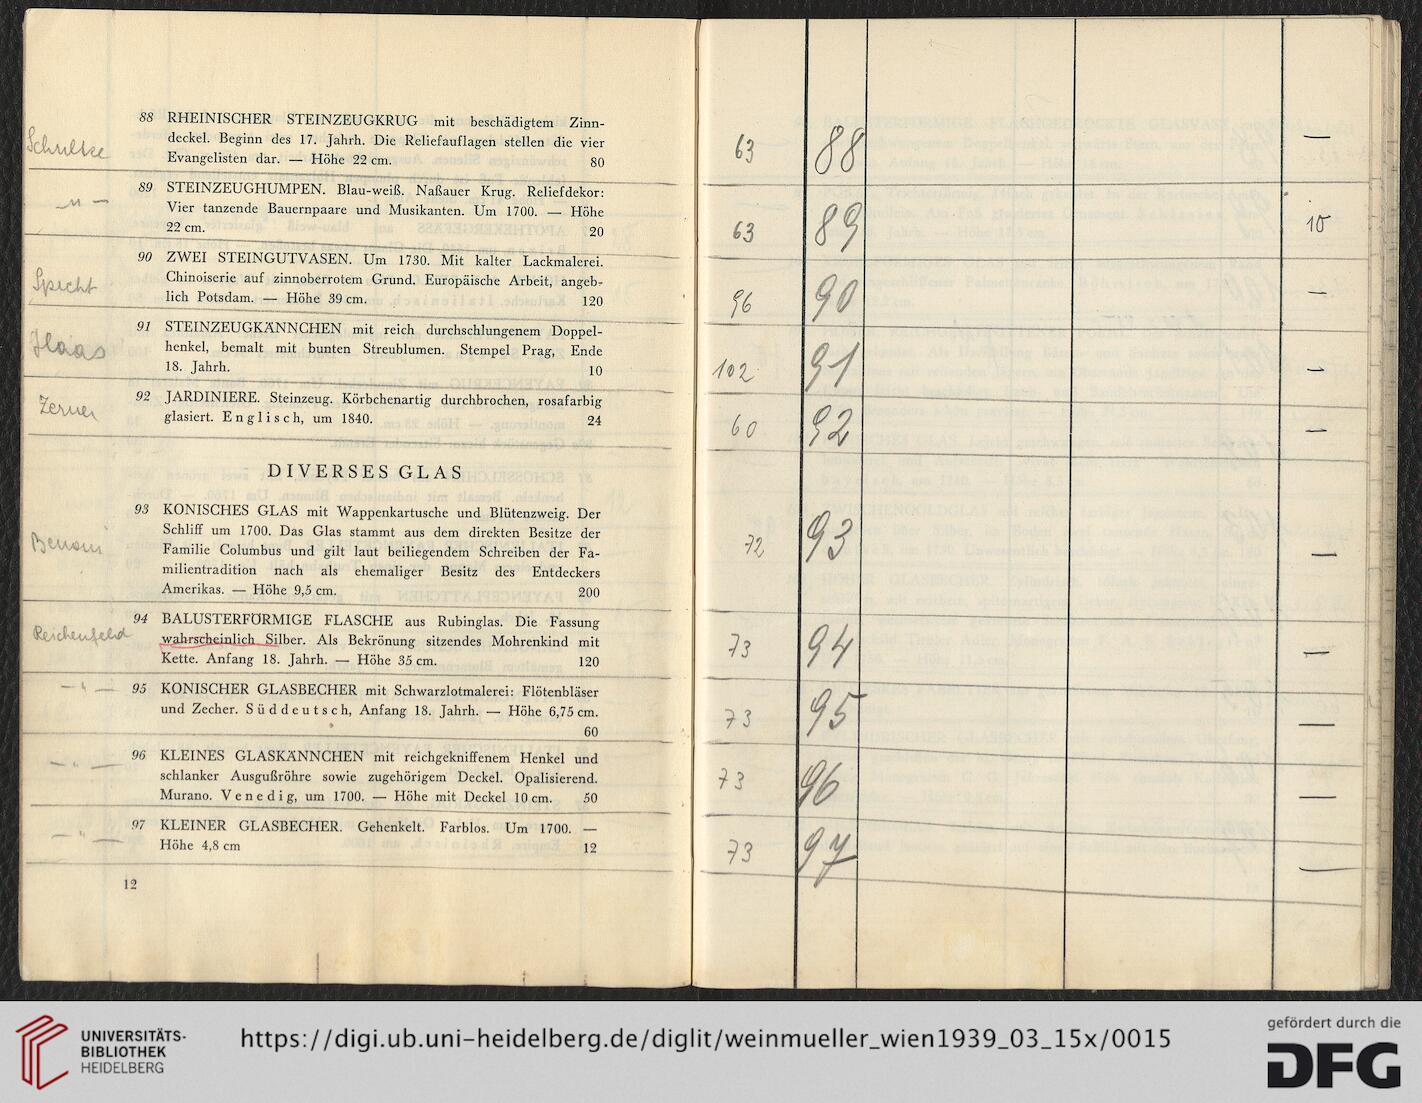 88 RHEINISCHER STEINZEUGKRUG mit beschädigtem Zinn-
deckel. Beginn des 17. Jahrh. Die Reliefauflagen stellen die vier
Evangelisten dar. — Höhe 22 cm. 80
89 STEINZEUGHUMPEN. Blau-weiß. Naßauer Krug. Reliefdekor:
Vier tanzende Bauernpaare und Musikanten. Um 1700. — Höhe
22 cm. 20
Specht
90 ZWEI STEINGUTVASEN. Um 1730. Mit kalter Lackmalerei.
Chinoiserie auf zinnoberrotem Grund. Europäische Arbeit, angeb-
lich Potsdam. — Höhe 39 cm. 120
Haas
91 STEINZEUGKÄNNCHEN mit reich durchschlungenem Doppel-
henkel, bemalt mit bunten Streublumen. Stempel Prag, Ende
18. Jahrh. 10
Zerner
92 JARDINIERE. Steinzeug. Körbchenartig durchbrochen, rosafarbig
glasiert. Englisch, um 1840. 24
DIVERSES GLAS
93 KONISCHES GLAS mit Wappenkartusche und Blütenzweig. Der
Schliff um 1700. Das Glas stammt aus dem direkten Besitze der
Familie Columbus und gilt laut beiliegendem Schreiben der Fa-
milientradition nach als ehemaliger Besitz des Entdeckers
Amerikas. — Höhe 9,5 cm. 200
Reichenfeld
94 BALUSTERFÖRMIGE FLASCHE aus Rubinglas. Die Fassung
wahrscheinlich Silber. Als Bekrönung sitzendes Mohrenkind mit
Kette. Anfang 18. Jahrh. — Höhe 35 cm. 120
— " —
95 KONISCHER GLASBECHER mit Schwarzlotmalerei: Flötenbläser
und Zecher. Süddeutsch, Anfang 18. Jahrh. — Höhe 6,75 cm.
60
— " —
96 KLEINES GLASKÄNNCHEN mit reichgekniffenem Henkel und
schlanker Ausgußröhre sowie zugehörigem Deckel. Opalisierend.
Murano. Venedig, um 1700. — Höhe mit Deckel 10 cm. 50
— " —
97 KLEINER GLASBECHER. Gehenkelt. Farblos. Um 1700. —
Höhe 4,8 cm 12
12
63 88 —
63 89 10
96 90 —
102 91 —
60 92 —
72 93 —
73 94 —
73 95 —
73 96 —
73 97 —
UNIVERSITÄTS-
BIBLIOTHEK
HEIDELBERG
https://digi.ub.uni-heidelberg.de/diglit/weinmueller_wien1939_03_15x/0015
gefördert durch die
DFG